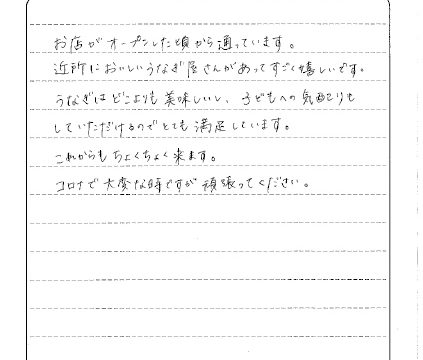 お店がオープンした頃から通っています。
近所においしいうなぎ屋さんがあってすごく嬉しいです。
うなぎはどこよりも美味しいし、子どもへの気配りも
していただけるのでとても満足しています。
これからもちょくちょく来ます。
コロナで大変な時ですが頑張ってください。